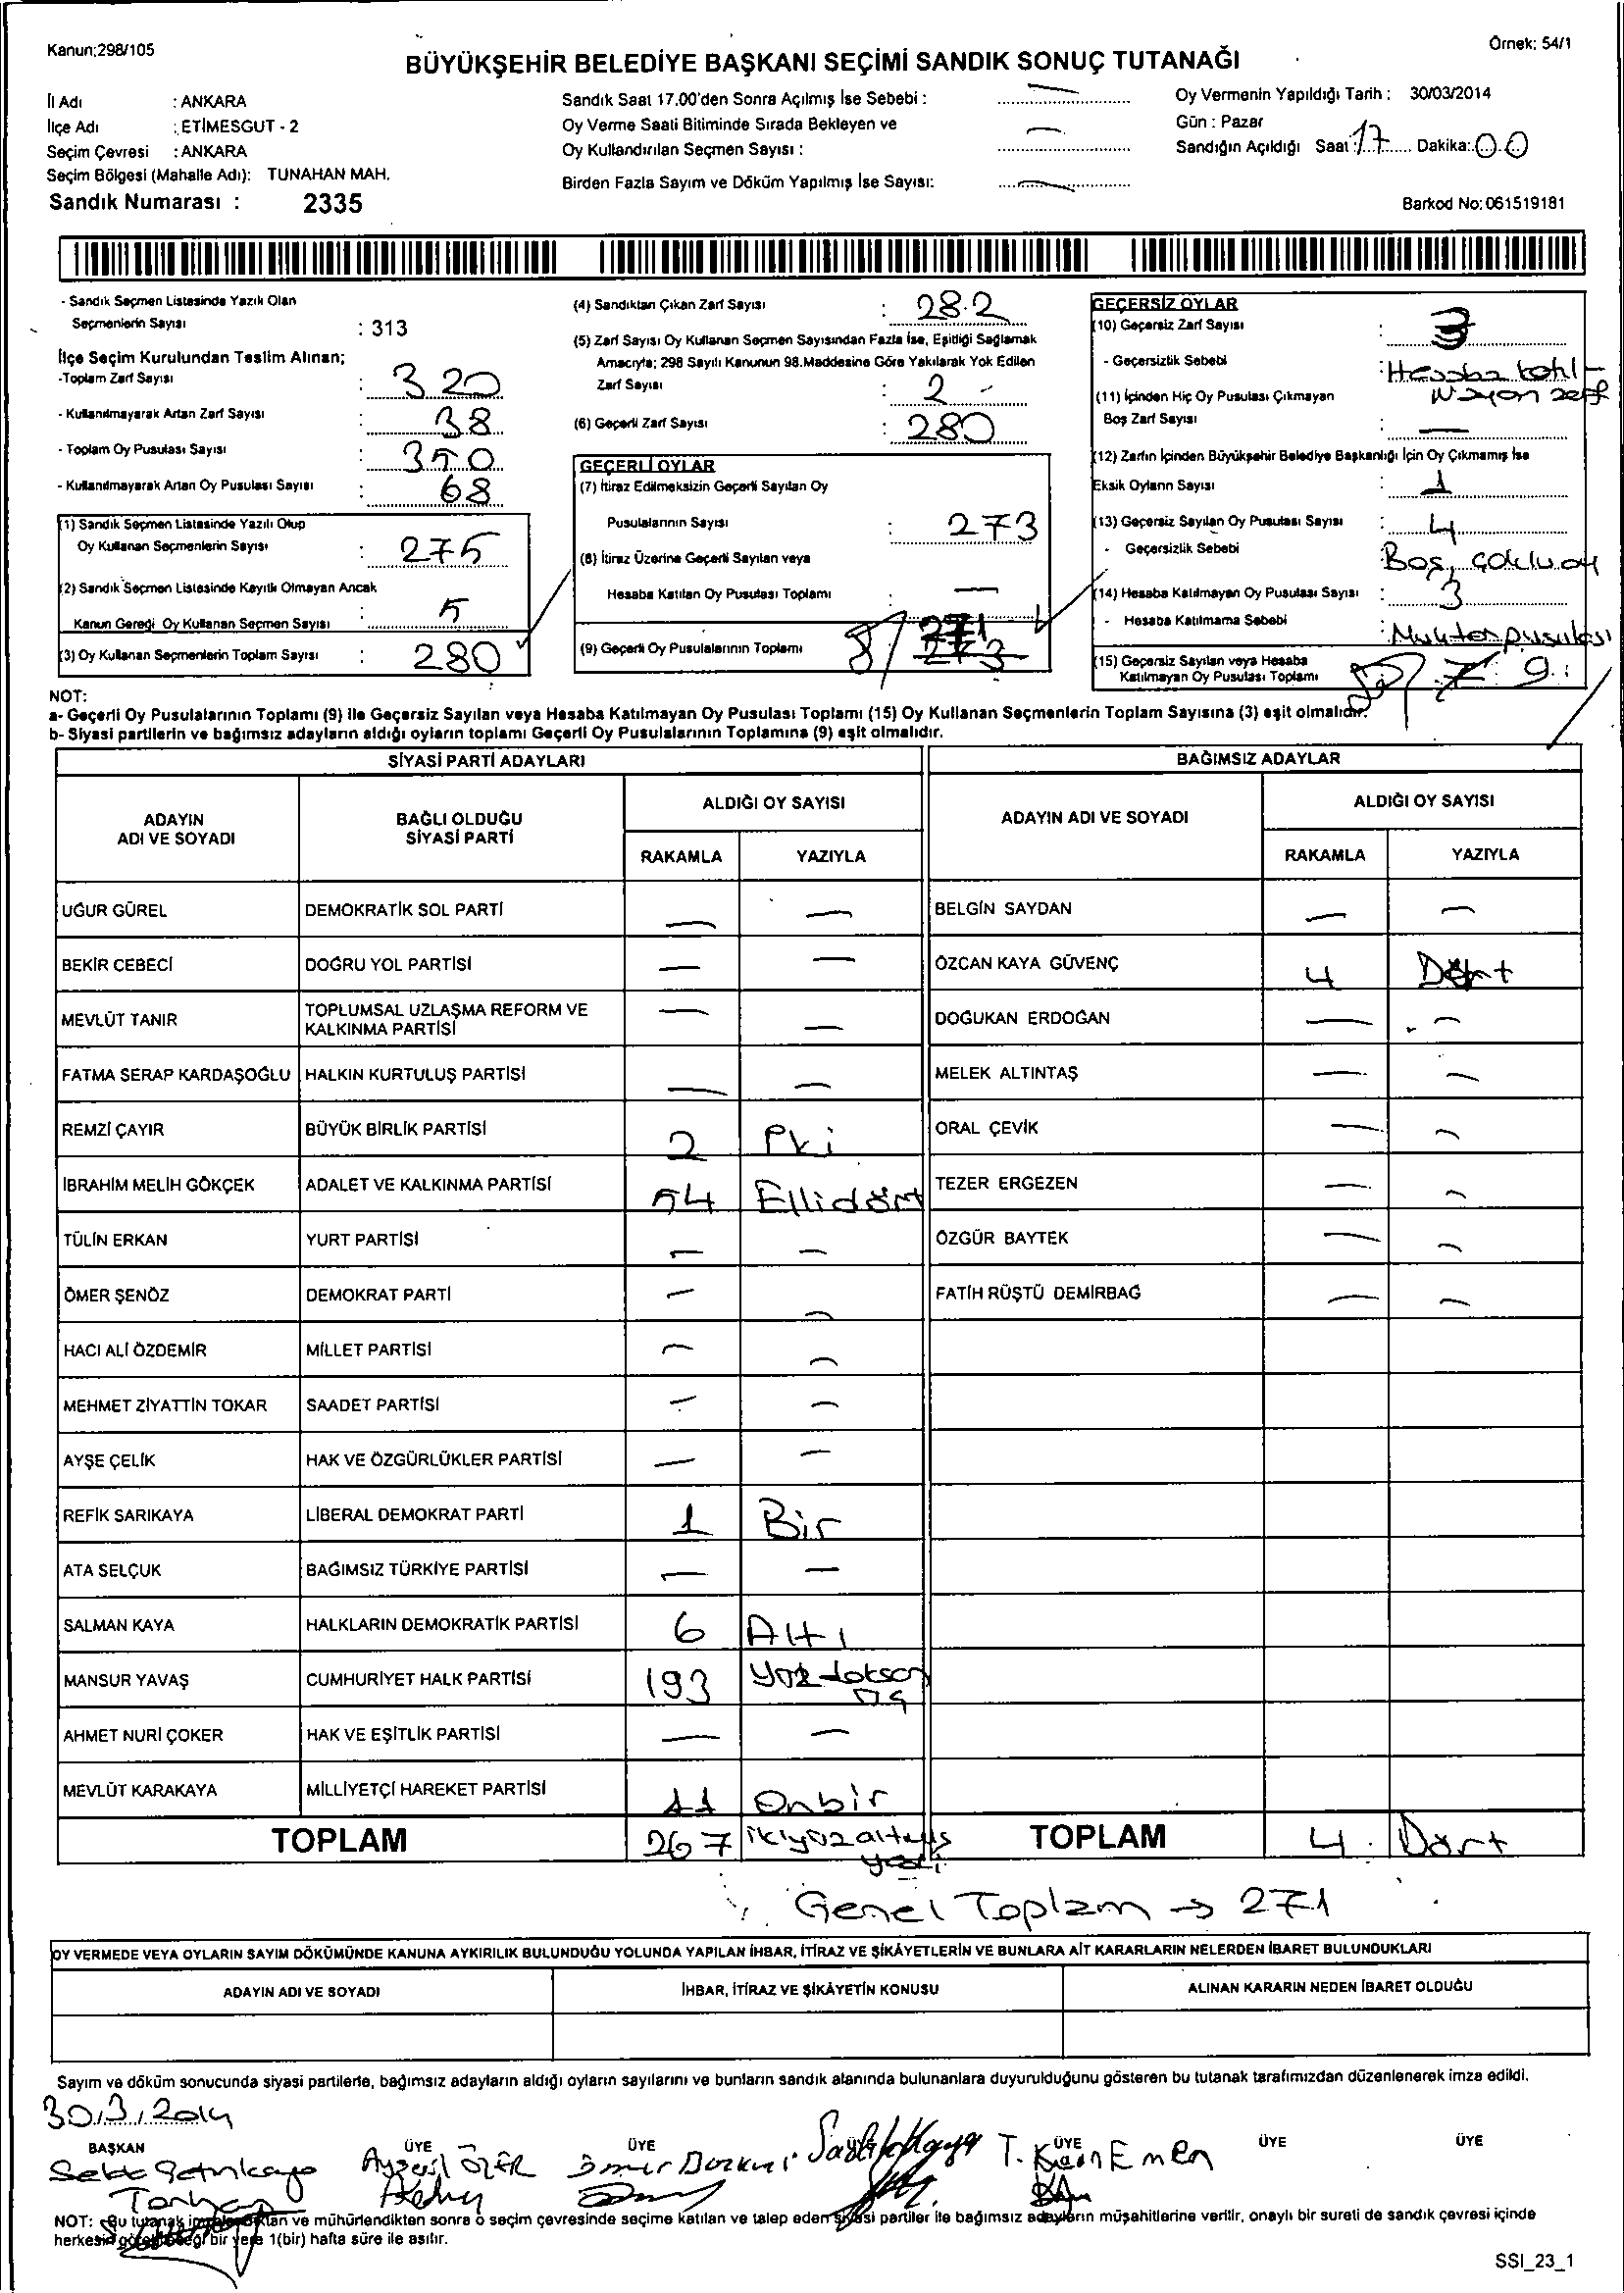 Kanun;298/105
Örnek: 54/1
BÜYÜKŞEHİR BELEDİYE BAŞKANI SEÇİMİ SANDIK SONUÇ TUTANAĞI
İl Adı : ANKARA
İlçe Adı : ETİMESGUT - 2
Seçim Çevresi : ANKARA
Seçim Bölgesi (Mahalle Adı): TUNAHAN MAH.
Sandık Numarası : 2335
Sandık Saat 17.00'den Sonra Açılmış İse Sebebi : —
Oy Verme Saati Bitiminde Sırada Bekleyen ve
Oy Kullandırılan Seçmen Sayısı : —
Birden Fazla Sayım ve Döküm Yapılmış İse Sayısı: —
Oy Vermenin Yapıldığı Tarih : 30/03/2014
Gün : Pazar
Sandığın Açıldığı Saat : 17 Dakika: 00
Barkod No: 061519181
- Sandık Seçmen Listesinde Yazılı Olan
Seçmenlerin Sayısı : 313
İlçe Seçim Kurulundan Teslim Alınan;
-Toplam Zarf Sayısı : 320
- Kullanılmayarak Artan Zarf Sayısı : 38
- Toplam Oy Pusulası Sayısı : 350
- Kullanılmayarak Artan Oy Pusulası Sayısı : 68
(1) Sandık Seçmen Listesinde Yazılı Olup
Oy Kullanan Seçmenlerin Sayısı : 275
(2) Sandık Seçmen Listesinde Kayıtlı Olmayan Ancak
Kanun Gereği Oy Kullanan Seçmen Sayısı : 5
(3) Oy Kullanan Seçmenlerin Toplam Sayısı : 280
(4) Sandıktan Çıkan Zarf Sayısı : 282
(5) Zarf Sayısı Oy Kullanan Seçmen Sayısından Fazla İse, Eşitliği Sağlamak
Amacıyla; 298 Sayılı Kanunun 98.Maddesine Göre Yakılarak Yok Edilen
Zarf Sayısı : 2
(6) Geçerli Zarf Sayısı : 280
GEÇERLİ OYLAR
(7) İtiraz Edilmeksizin Geçerli Sayılan Oy
Pusulalarının Sayısı : 273
(8) İtiraz Üzerine Geçerli Sayılan veya
Hesaba Katılan Oy Pusulası Toplamı : —
(9) Geçerli Oy Pusulalarının Toplamı 271 273
GEÇERSİZ OYLAR
(10) Geçersiz Zarf Sayısı : 3
- Geçersizlik Sebebi : Hesaba katıl-
mayan zarf
(11) İçinden Hiç Oy Pusulası Çıkmayan
Boş Zarf Sayısı : —
(12) Zarfın İçinden Büyükşehir Belediye Başkanlığı İçin Oy Çıkmamış İse
Eksik Oyların Sayısı : 1
(13) Geçersiz Sayılan Oy Pusulası Sayısı : 4
- Geçersizlik Sebebi : Boş, çoklu oy
(14) Hesaba Katılmayan Oy Pusulası Sayısı : 3
- Hesaba Katılmama Sebebi : Muhtar pusulası
(15) Geçersiz Sayılan veya Hesaba
Katılmayan Oy Pusulası Toplamı 7 9
NOT:
a- Geçerli Oy Pusulalarının Toplamı (9) ile Geçersiz Sayılan veya Hesaba Katılmayan Oy Pusulası Toplamı (15) Oy Kullanan Seçmenlerin Toplam Sayısına (3) eşit olmalıdır.
b- Siyasi partilerin ve bağımsız adayların aldığı oyların toplamı Geçerli Oy Pusulalarının Toplamına (9) eşit olmalıdır.
SİYASİ PARTİ ADAYLARI
BAĞIMSIZ ADAYLAR
ADAYIN
ADI VE SOYADI
BAĞLI OLDUĞU
SİYASİ PARTİ
ALDIĞI OY SAYISI
RAKAMLA YAZIYLA
ADAYIN ADI VE SOYADI
ALDIĞI OY SAYISI
RAKAMLA YAZIYLA
UĞUR GÜREL DEMOKRATİK SOL PARTİ — — BELGİN SAYDAN — —
BEKİR CEBECİ DOĞRU YOL PARTİSİ — — ÖZCAN KAYA GÜVENÇ 4 Dört
MEVLÜT TANIR TOPLUMSAL UZLAŞMA REFORM VE
KALKINMA PARTİSİ — — DOĞUKAN ERDOĞAN — —
FATMA SERAP KARDAŞOĞLU HALKIN KURTULUŞ PARTİSİ — — MELEK ALTINTAŞ — —
REMZİ ÇAYIR BÜYÜK BİRLİK PARTİSİ 2 İki ORAL ÇEVİK — —
İBRAHİM MELİH GÖKÇEK ADALET VE KALKINMA PARTİSİ 54 Ellidört TEZER ERGEZEN — —
TÜLİN ERKAN YURT PARTİSİ — — ÖZGÜR BAYTEK — —
ÖMER ŞENÖZ DEMOKRAT PARTİ — — FATİH RÜŞTÜ DEMİRBAĞ — —
HACI ALİ ÖZDEMİR MİLLET PARTİSİ — —
MEHMET ZİYATTİN TOKAR SAADET PARTİSİ — —
AYŞE ÇELİK HAK VE ÖZGÜRLÜKLER PARTİSİ — —
REFİK SARIKAYA LİBERAL DEMOKRAT PARTİ 1 Bir
ATA SELÇUK BAĞIMSIZ TÜRKİYE PARTİSİ — —
SALMAN KAYA HALKLARIN DEMOKRATİK PARTİSİ 6 Altı
MANSUR YAVAŞ CUMHURİYET HALK PARTİSİ 193 Yüz doksan
üç
AHMET NURİ ÇOKER HAK VE EŞİTLİK PARTİSİ — —
MEVLÜT KARAKAYA MİLLİYETÇİ HAREKET PARTİSİ 11 Onbir
TOPLAM 267 ikiyüz altmış
yedi TOPLAM 4 Dört
Genel Toplam → 271
OY VERMEDE VEYA OYLARIN SAYIM DÖKÜMÜNDE KANUNA AYKIRILIK BULUNDUĞU YOLUNDA YAPILAN İHBAR, İTİRAZ VE ŞİKÂYETLERİN VE BUNLARA AİT KARARLARIN NELERDEN İBARET BULUNDUKLARI
ADAYIN ADI VE SOYADI İHBAR, İTİRAZ VE ŞİKÂYETİN KONUSU ALINAN KARARIN NEDEN İBARET OLDUĞU
Sayım ve döküm sonucunda siyasi partilerle, bağımsız adayların aldığı oyların sayılarını ve bunların sandık alanında bulunanlara duyurulduğunu gösteren bu tutanak tarafımızdan düzenlenerek imza edildi.
30.3.2014
BAŞKAN ÜYE ÜYE ÜYE ÜYE ÜYE
NOT: Bu tutanak imzalandıktan ve mühürlendikten sonra o seçim çevresinde seçime katılan ve talep eden siyasi partiler ile bağımsız adayların müşahitlerine verilir, onaylı bir sureti de sandık çevresi içinde
herkesin görebileceği bir yere 1(bir) hafta süre ile asılır.
SSI_23_1